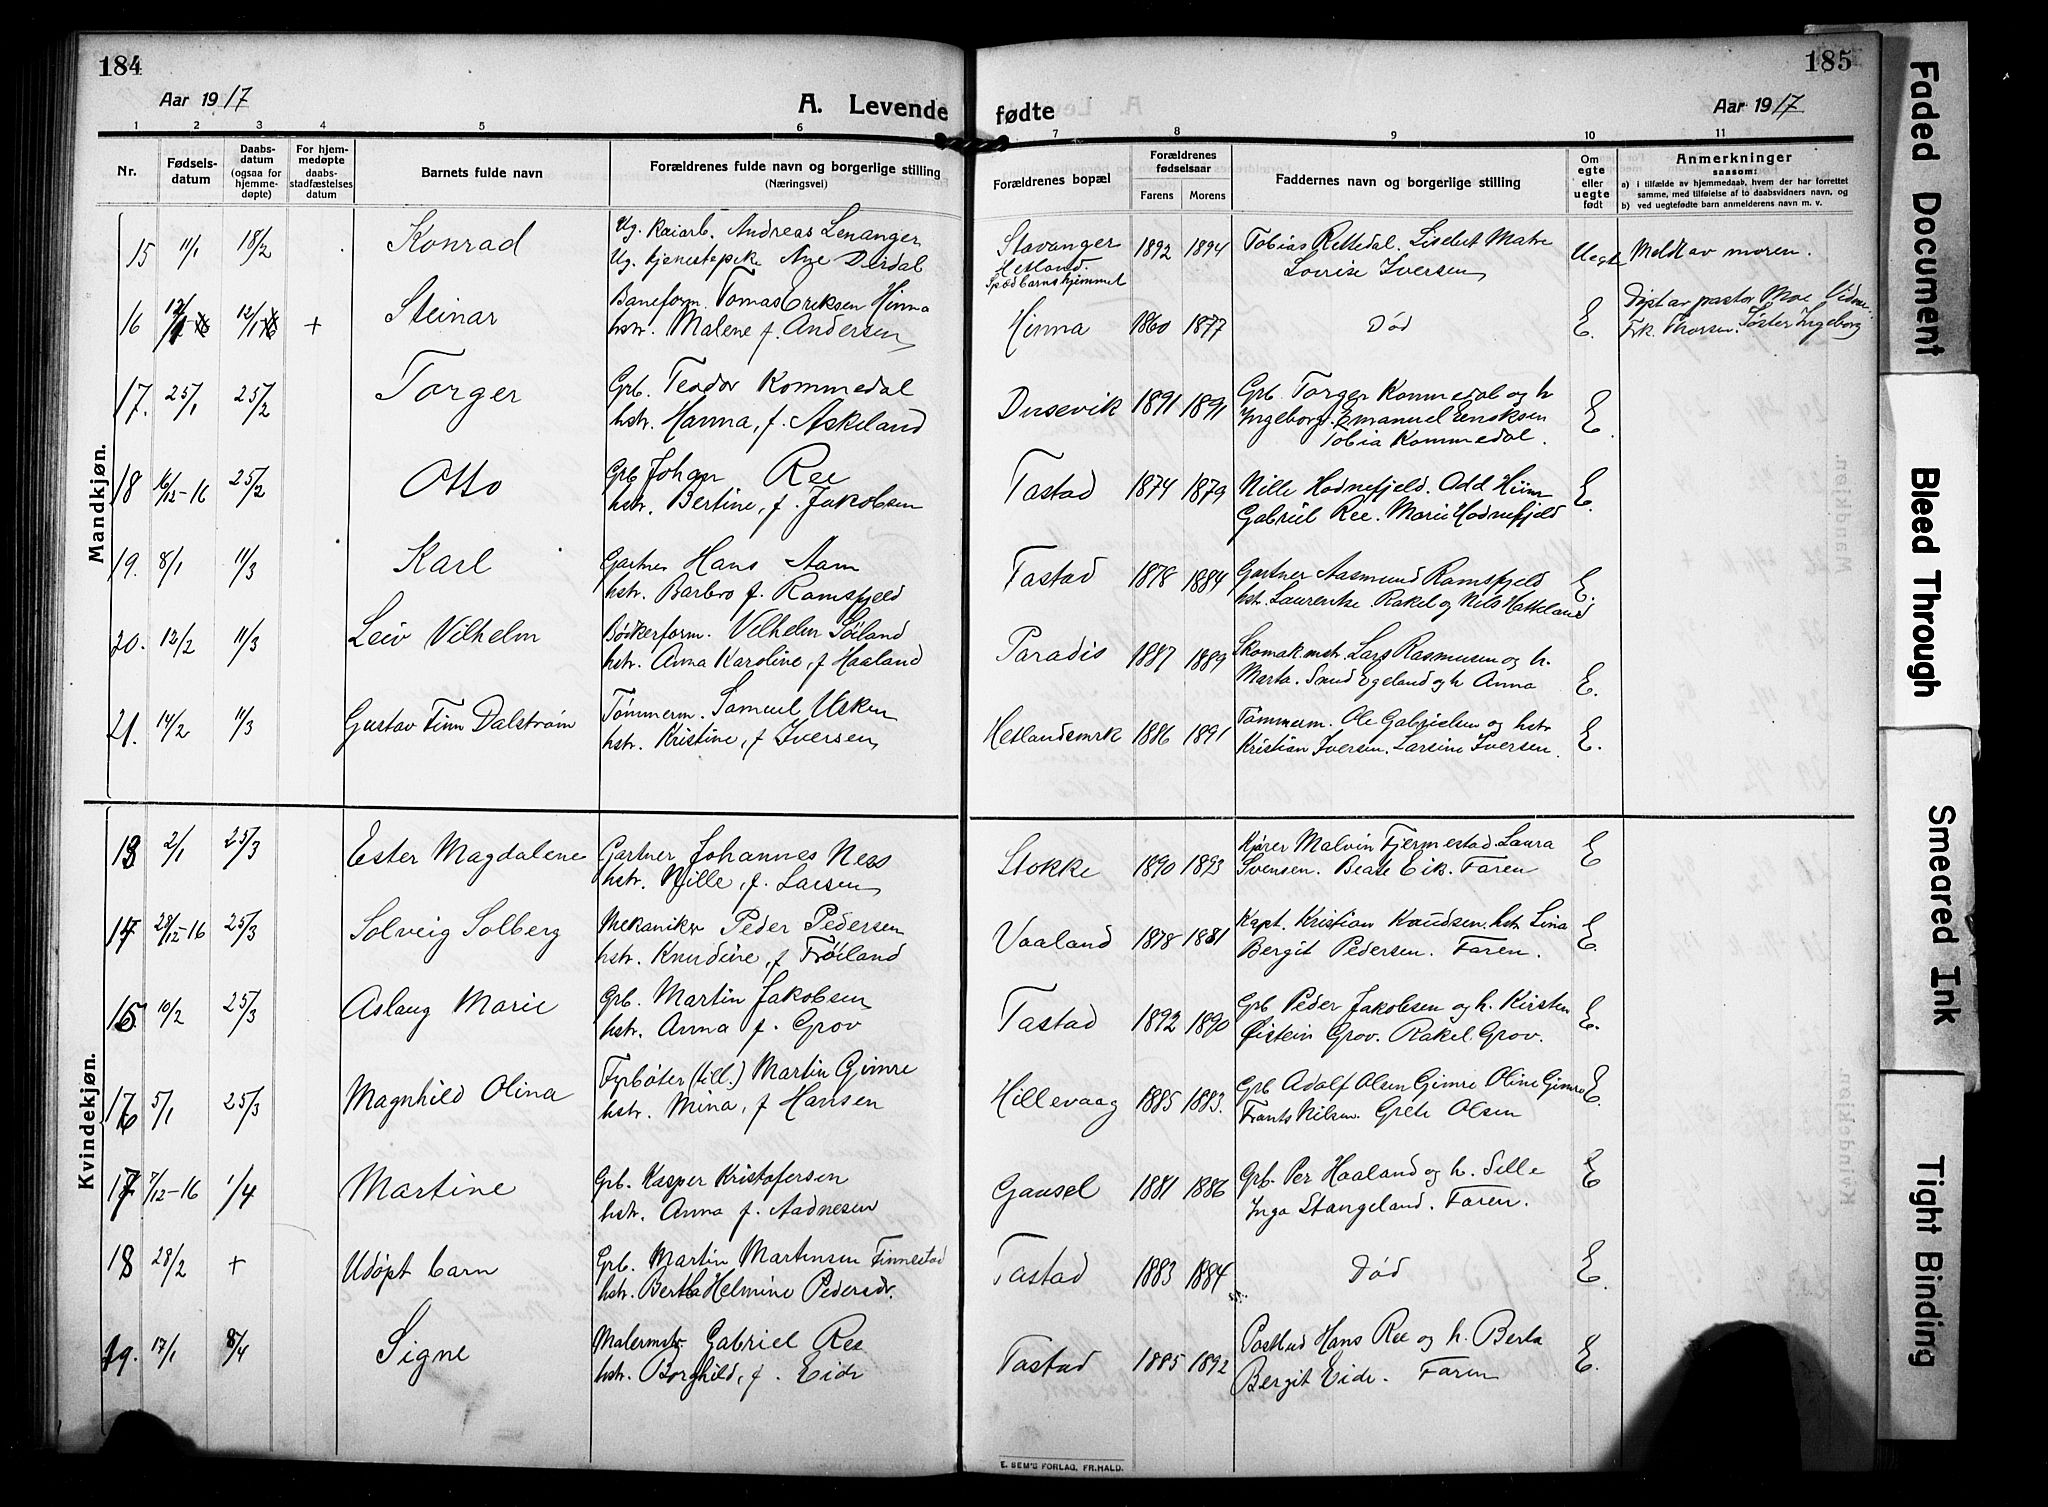 184
Aar 1917
A. Levende
fødte
Aar 1917
185
1 2 3 4 5 6 7 8 9 10 11
Nr.
Fødsels-
datum
Daabs-
datum
(ogsaa for
hjemme-
døpte)
For hjem-
medøpte
daabs-
stadfæstelses
datum
Barnets fulde navn
Forældrenes fulde navn og borgerlige stilling
(Næringsvei)
Forældrenes bopæl
Forældrenes
fødselsaar
Farens Morens
Faddernes navn og borgerlige stilling
Om
egte
eller
uegte
født
Anmerkninger
saasom:
a) i tilfælde av hjemmedaab, hvem der har forrettet
samme, med tilføielse af to daabsvidners navn, og
b) ved uegtefødte barn anmelderens navn m. v.
Mandkjøn.
15 11/1 18/2 Konrad Ug. Kaiarb. Andreas Lenanger Stavanger 1892 1894 Tobias Rettedal. Lisebet Matre Uegte Meldt av moren.
Ug. tjenestepike Aye Dirdal Hetland. Lovise Iversen
Spædbarnshjemmet
16 12/1 + Steinar Baneform. Tomas Eriksen Hinna Hinna 1860 1877 Død E. Døpt av pastor Moe. Vidne:
hstr. Malene f. Andersen Frk. Thorsen. Søster Ingeborg
17. 25/1 25/2 Torger Grb. Teodor Kommedal Dusevik 1891 1891 Grb. Torger Kommedal og h E.
hstr. Hanna, f. Askeland Ingeborg. Emanuel Eriksen
Tobia Kommedal.
18 16/12-16 25/2 Otto Grb Johan Ree Tastad 1874 1879 Nille Hodnefjeld. Odd Hiim E.
hstr. Bertine, f. Jakobsen Gabriel Ree. Marie Hodnefjeld
19. 8/1 11/3 Karl Gartner Hans Aam Tastad 1878 1884 Gartner Aasmund Ramsfjeld E.
hstr. Barbro f. Ramsfjeld hst. Laurentse Rakel og Nils Hatteland
20. 12/2 11/3 Leiv Vilhelm Bødkerform. Vilhelm Søiland Paradis 1887 1889 Skomak.mstr. Lars Rasmusen og h.
hstr. Anna Karoline, f Haaland Marta. Saud Egeland og h Anna E.
21. 14/2 11/3 Gustav Finn Dalstrøm Tømmerm. Samuel Usken Hetlandsmrk 1886 1891 Tømmerm. Ole Gabrielsen og hstr E.
hstr. Kristine, f Iversen Kristian Iversen. Larsine Iversen.
Kvindekjøn.
13 2/1 25/3 Ester Magdalene Gartner Johannes Ness Stokke 1890 1893 Kjører Malvin Fjermestad Laura E
hstr. Nille, f. Larsen Svensen. Beate Eik. Faren
14 28/12-16 25/3 Solveig Solberg Mekaniker Peder Pedersen Vaaland 1878 1881 Kapt. Kristian Knudsen. hstr Lina E.
hstr. Knudine, f Frøiland Bergit Pedersen. Faren.
15. 10/2 25/3 Aslaug Marie Grb. Martin Jakobsen Tastad 1892 1890 Grb Peder Jakobsen og h. Kirsten E.
hstr. Anna f. Grov Øistein Grov. Rakel Grov.
16 5/1 25/3 Magnhild Olina Fyrbøter (till.) Martin Gimre Hillevaag 1885 1883. Grb Adolf Olsen Gimre Oline Gimre E.
hstr. Mina, f Hansen Frants Nilsen. Grete Olsen
17 7/12-16 1/4 Martine Grb. Kasper Kristofersen Gausel 1881 1886 Grb. Per Haaland og h. Sille E
hstr. Anna f. Aadnesen Inga Stangeland. Faren.
18 28/2 + Udøpt barn Grb. Martin Martinsen Finnestad Tastad 1883 1884 Død E.
hstr. Berthe Helmine Pedersdr.
19. 17/1 8/4 Signe Malermstr Gabriel Ree Tastad 1885 1892 Postbud Hans Ree og h. Berta E.
hstr. Borghild, f. Eide Bergit Eide. Faren
E. SEM'S FORLAG, FR.HALD.
Faded Document
Bleed Through
Smeared Ink
Tight Binding